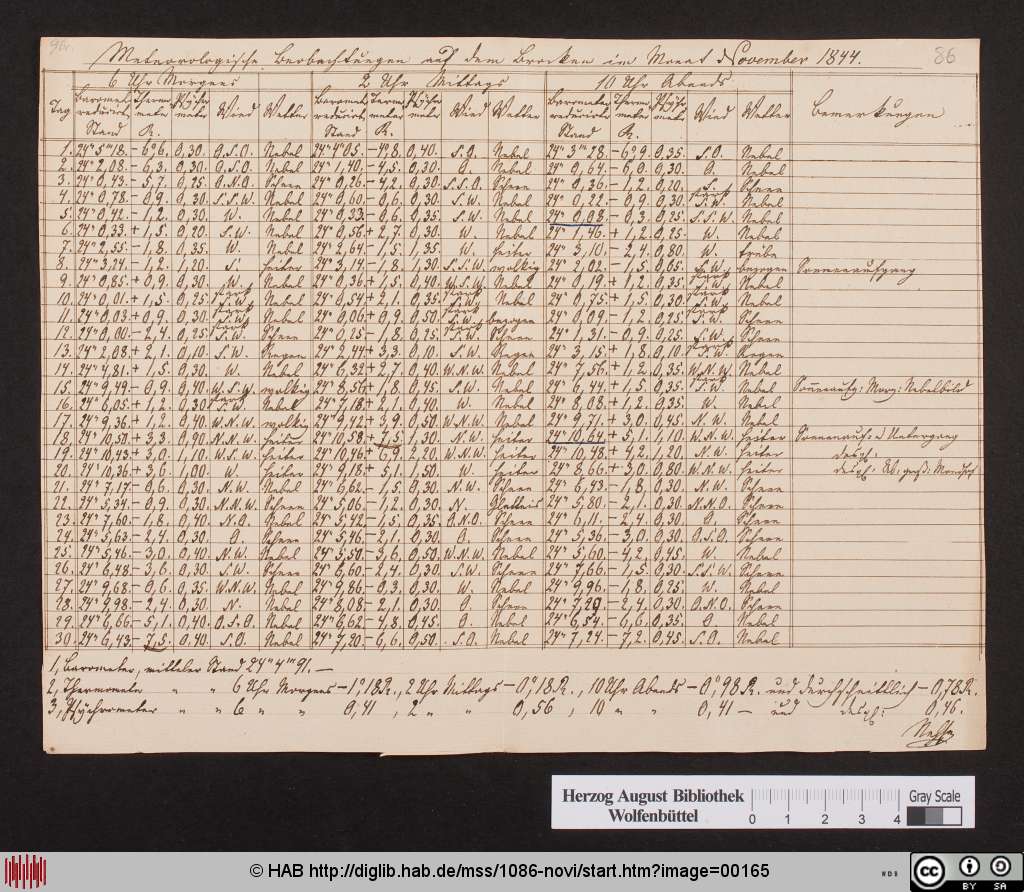 96r.
86
Meteorologische Beobachtungen auf dem Brocken im Monat November 1844.
6 Uhr Morgens 2 Uhr Mittags 10 Uhr Abends
Tag Baromet. reducirte Stand Thermometer R. Psychrometer Wind Wetter Baromet. reducirte Stand Thermometer R. Psychrometer Wind Wetter Barometer reducirte Stand Thermometer R. Psychrometer Wind Wetter Bemerkungen
1. 24" 5'"18. - 6°6. 0,30. O.S.O. Nebel 24" 4"'05. - 4°,8. 0,40. S.O. Nebel 24" 3"'28. - 6°,9. 0,35. S.O. Nebel
2. 24" 2,08. - 6,3. 0,30. O.S.O. Nebel 24" 1,40. - 4,5. 0,30. O. Nebel 24" 0,64. - 6,0. 0,30. O. Nebel
3. 24" 0,43. - 5,7. 0,25. O.N.O. Schnee 24" 0,26. - 4,2. 0,30. S.S.O. Schnee 24" 0,36. - 1,2. 0,20. S. Schnee
4. 24" 0,78. - 0,9. 0,30. S.S.W. Nebel 24" 0,60. - 0,6. 0,30. S.W. Nebel 24" 0,22. - 0,9. 0,30. stark S.W. Nebel
5. 24" 0,42. - 1,2. 0,30. W. Nebel 24" 0,33. - 0,6. 0,35. S.W. Nebel 24" 0,08. - 0,3. 0,25. S.S.W. Nebel
6. 24" 0,33. + 1,5. 0,20. S.W. Nebel 24" 0,56. + 2,7. 0,30. W. Nebel 24" 1,46. + 1,2. 0,25. W. Nebel
7. 24" 2,55. - 1,8. 0,35. W. Nebel 24" 2,64. - 1,5. 1,35. W. heiter 24" 3,10. - 2,4. 0,80. W. trübe
8. 24" 3,24. - 1,2. 1,20. S. heiter 24" 3,14. - 1,8. 1,30. S.S.W. wolkig 24" 2,02. - 1,5. 0,05. S.W. bezogen Sonnenaufgang
9. 24" 0,85. + 0,9. 0,30. W. Nebel 24" 0,36. + 1,5. 0,40. W.S.W. Nebel 24" 0,19. + 1,2. 0,35. stark S.W. Nebel
10. 24" 0,01. + 1,5. 0,25. stark S.W. Nebel 24" 0,54. + 2,1. 0,35. stark S.W. Nebel 24" 0,75. + 1,5. 0,30. stark S.W. Nebel
11. 24" 0,03. + 0,9. 0,30. stark S.W. Nebel 24" 0,06. + 0,9. 0,50. stark S.W. bezogen 24" 0,09. - 1,2. 0,25. stark S.W. Schnee
12. 24" 0,00. - 2,4. 0,25. stark S.W. Schnee 24" 0,25. - 1,8. 0,25. stark S.W. Schnee 24" 1,31. - 0,9. 0,25. S.W. Schnee
13. 24" 2,08. + 2,1. 0,10. S.W. Regen 24" 2,44. + 3,3. 0,10. S.W. Regen 24" 3,15. + 1,8. 0,10. stark S.W. Regen
14. 24" 4,81. + 1,5. 0,30. W. Nebel 24" 6,32. + 2,7. 0,40. W.N.W. Nebel 24" 7,56. + 1,2. 0,35. W.N.W. Nebel
15. 24" 9,49. - 0,9. 0,40. W.S.W. wolkig 24" 8,56. + 1,8. 0,45. S.W. Nebel 24" 6,44. + 1,5. 0,35. stark S.W. Nebel Sonnenaufg: Morg: Nebelbild
16. 24" 6,05. + 1,2. 0,30. stark S.W. Nebel 24" 7,18. + 2,1. 0,40. W. Nebel 24" 8,08. + 1,2. 0,35. W. Nebel
17. 24" 9,36. + 1,2. 0,40. W.N.W. wolkig 24" 9,42. + 3,9. 0,50. W.N.W. Nebel 24" 9,71. + 3,0. 0,45. N.W. Nebel
18. 24" 10,50. + 3,3. 0,90. N.N.W. heiter 24" 10,58. + 7,5. 1,30. N.W. heiter 24" 10,64. + 5,1. 1,10. W.N.W. heiter Sonnenauf- u Untergang
19. 24" 10,43. + 3,0. 1,10. W.S.W. heiter 24" 10,46. + 6,9. 2,20. W.N.W. heiter 24" 10,48. + 4,2. 1,20. N.W. heiter desgl:
20. 24" 10,36. + 3,6. 1,00. W. heiter 24" 9,18. + 5,1. 1,50. W. heiter 24" 8,66. + 3,0. 0,80. W.N.W. heiter desgl:
21. 24" 7,17. - 0,6. 0,30. N.W. Nebel 24" 6,62. - 1,5. 0,30. N.W. Schnee 24" 6,43. - 1,8. 0,30. N.W. Schnee
22. 24" 5,34. - 0,9. 0,30. N.N.W. Schnee 24" 5,06. - 1,2. 0,30. N. Glatteis 24" 5,80. - 2,1. 0,30. N.N.O. Schnee
23. 24" 7,60. - 1,8. 0,40. N.O. Nebel 24" 5,42. - 1,5. 0,35. O.N.O. Schnee 24" 6,11. - 2,4. 0,30. O. Schnee
24. 24" 5,63. - 2,4. 0,30. O. Schnee 24" 5,46. - 2,1. 0,30. O. Schnee 24" 5,36. - 3,0. 0,30. O.S.O. Schnee
25. 24" 5,46. - 3,0. 0,40. N.W. Nebel 24" 5,50. - 3,6. 0,50. W.N.W. Nebel 24" 5,60. - 4,2. 0,45. W. Nebel
26. 24" 6,48. - 3,6. 0,30. S.W. Schnee 24" 6,60. - 2,4. 0,30. S.W. Schnee 24" 7,66. - 1,5. 0,30. S.S.W. Schnee
27. 24" 9,68. - 0,6. 0,35. W.N.W. Nebel 24" 9,86. - 0,3. 0,30. W. Nebel 24" 9,96. - 1,8. 0,25. W. Nebel
28. 24" 9,98. - 2,4. 0,30. N. Nebel 24" 8,08. - 2,1. 0,30. O. Schnee 24" 7,29. - 2,4. 0,30. O.N.O. Schnee
29. 24" 6,66. - 5,1. 0,40. O.S.O. Nebel 24" 6,62. - 4,8. 0,45. O. Nebel 24" 6,54. - 6,6. 0,35. O. Nebel
30. 24" 6,43. - 7,5. 0,40. S.O. Nebel 24" 7,20. - 6,6. 0,50. S.O. Nebel 24" 7,24. - 7,2. 0,45. S.O. Nebel
1, Barometer, mittlerer Stand 24" 4"'91. —
2, Thermometer " " 6 Uhr Morgens - 1°,18 R., 2 Uhr Mittags - 0°,18 R., 10 Uhr Abends - 0°,98 R. und durchschnittlich - 0,78 R.
3, Psychrometer " " 6 " " 0,41, 2 " " 0,56, 10 " " 0,41 — und desgl: 0,46.
Nehse
Herzog August Bibliothek
Wolfenbüttel
0 1 2 3 4
Gray Scale
© HAB http://diglib.hab.de/mss/1086-novi/start.htm?image=00165
WDB
cc BY SA